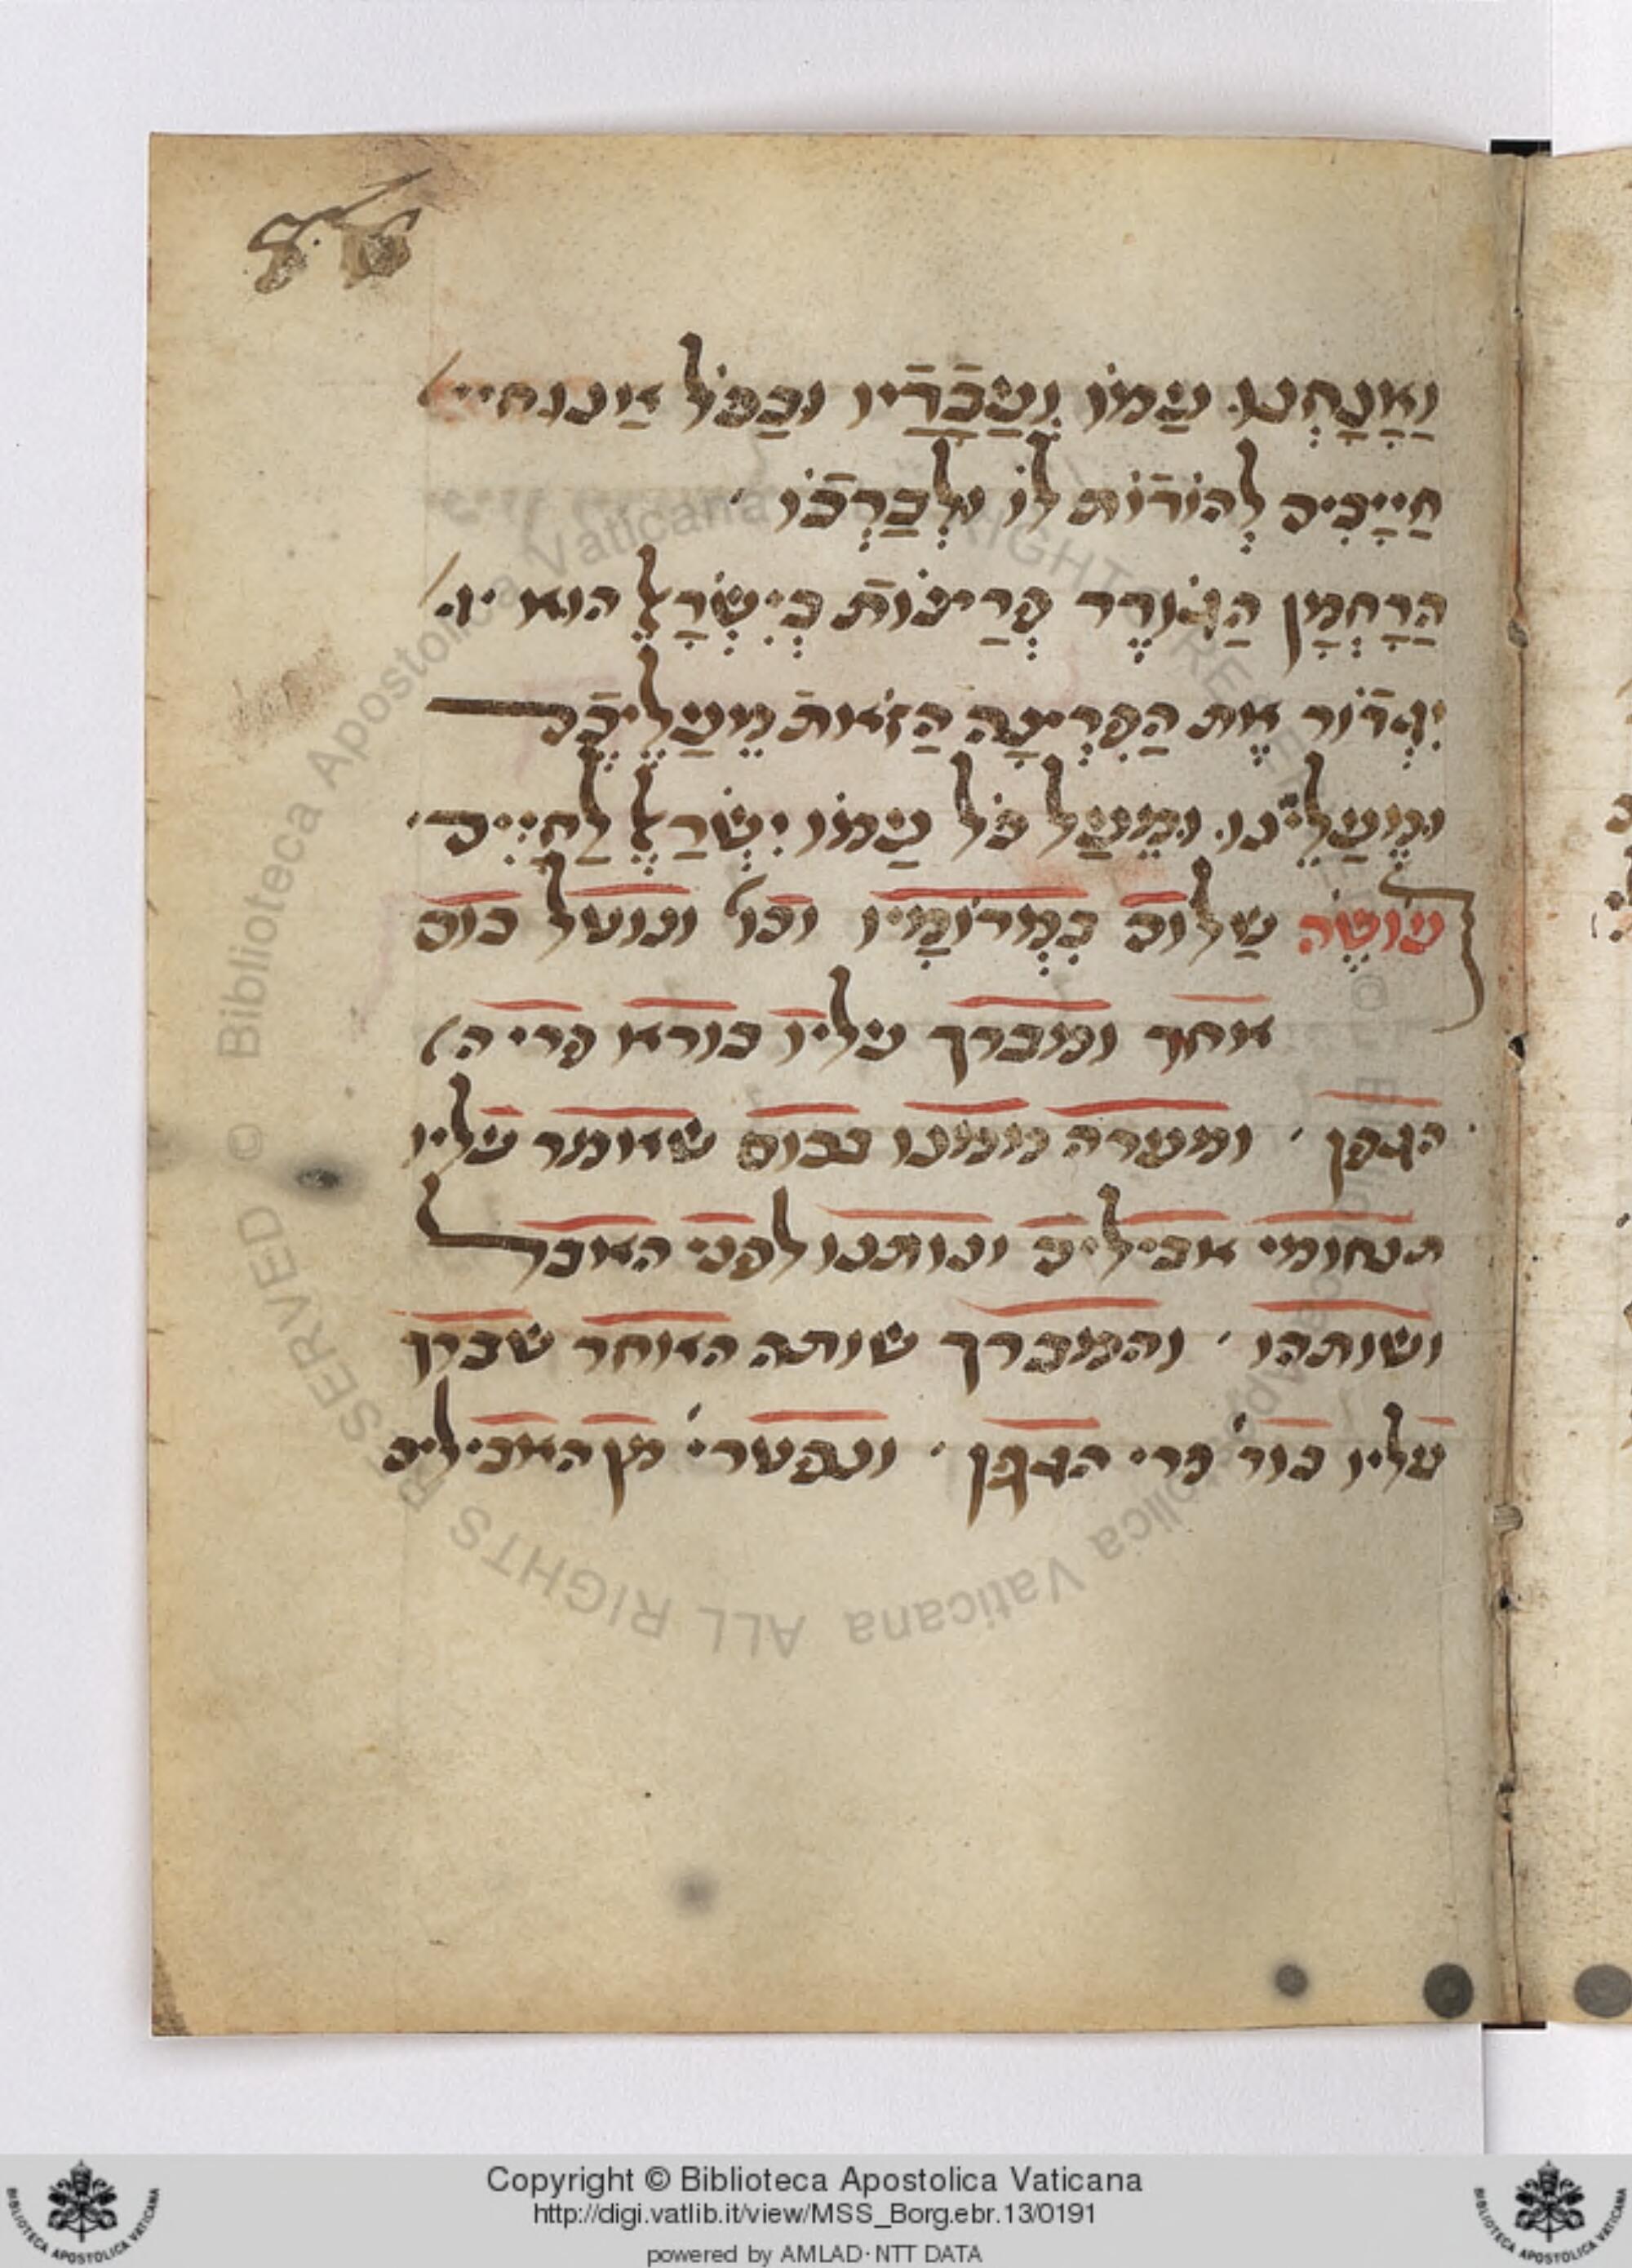 וַאֲנַחְנוּ עַמּוֹ וַעֲבָדָיו ובַכֹּל אֲנחנו
חַיָּיבִים לְהוֹדוֹת לוֹ וּלְבָרְכוֹ
הָרַחֲמָן הַגּוֹדֵר פְּרָצוֹת בְּיִשְׂרָאֵל הוא
יִגְדּוֹר אֶת הַפִּרְצָה הַזֹּאת מֵעֲלֵיכֶם
וּמֵעָלֵינוּ וּמֵעַל כֹּל עַמּוֹ יִשְׂרָאֵל לַחַיִּים
עוֹשֶׂה שָׁלוֹם בִּמְרוֹמָיו וכו׳ ונוטל כוס
אחר ומברך עליו בורא פרי
הגפן ומערה ממנו בכוס שאומר עליו
תנחומי אבילים ונותנו לפני האבל
ושותהו והמברך שותה האחר שבירך
עליו בור׳ פרי הגפן ונפטרי׳ מן האבילים
Copyright © Biblioteca Apostolica Vaticana
http://digi.vatlib.it/view/MSS_Borg.ebr.13/0191
powered by AMLAD·NTT DATA